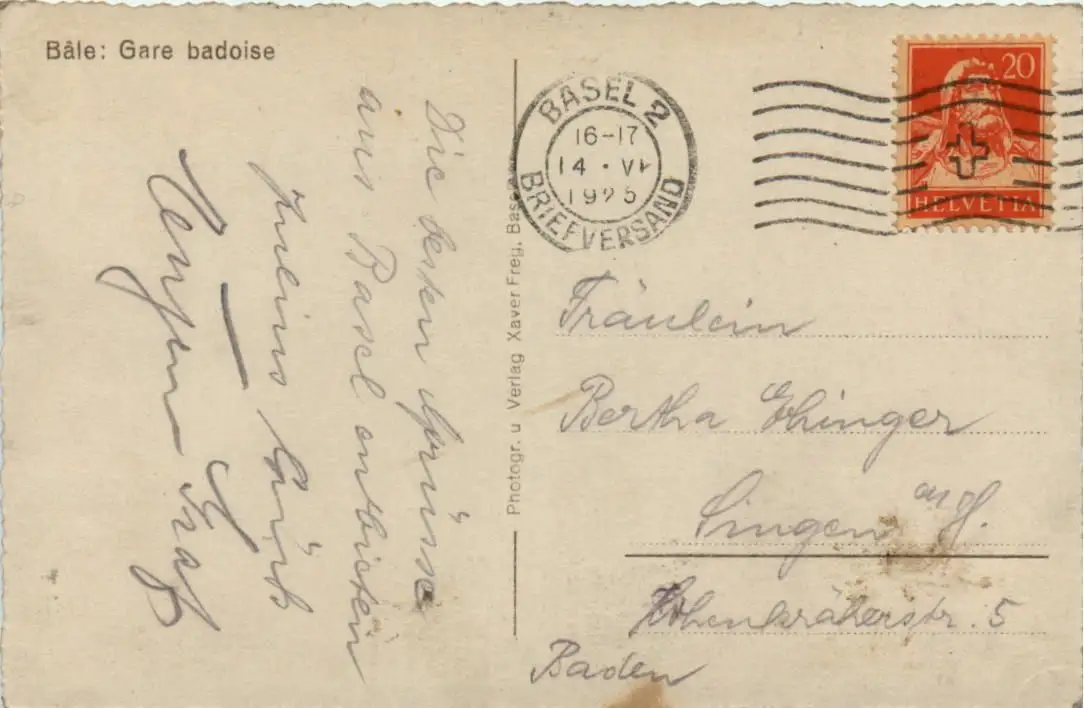 Bâle: Gare badoise
Die besten Grüsse
aus Basel entbieten
BASEL 2
16-17
14 · VI
1925
BRIEFVERSAND
20
HELVETIA
Photogr. u Verlag Xaver Frey, Basel
Fräulein
Bertha Ehinger
Singen a/H.
Hohenkräherstr. 5
Baden